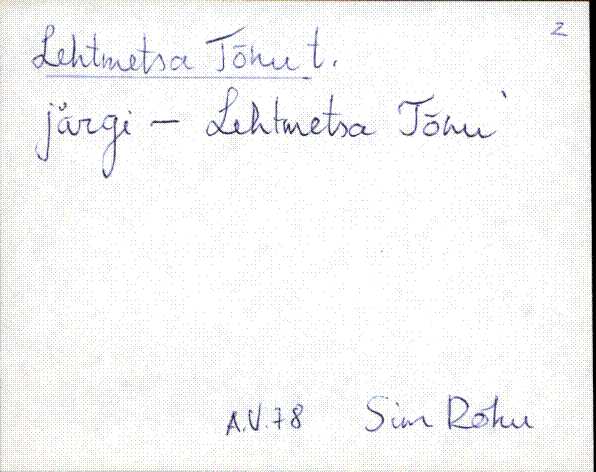 2
Lehtmetsa Tõnu t.
järgi – Lehtmetsa Tõnu`
A.V.78 Sim Rõhu